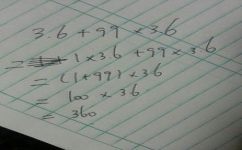 3.6 + 99 × 3.6
= 1 × 3.6 + 99 × 3.6
= (1 + 99) × 3.6
= 100 × 3.6
= 360